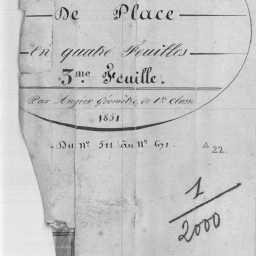 De Place
En quatre Feuilles
3me Feuille.
Par Angier Géomètre de 1re Classe
1851
Du No 511 au No 671.
A 22
1/2000